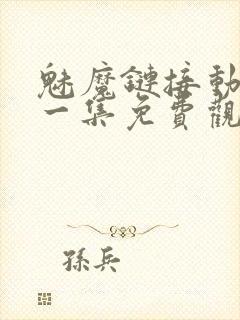 魅魔鏈接動
一集免費觀
孫兵